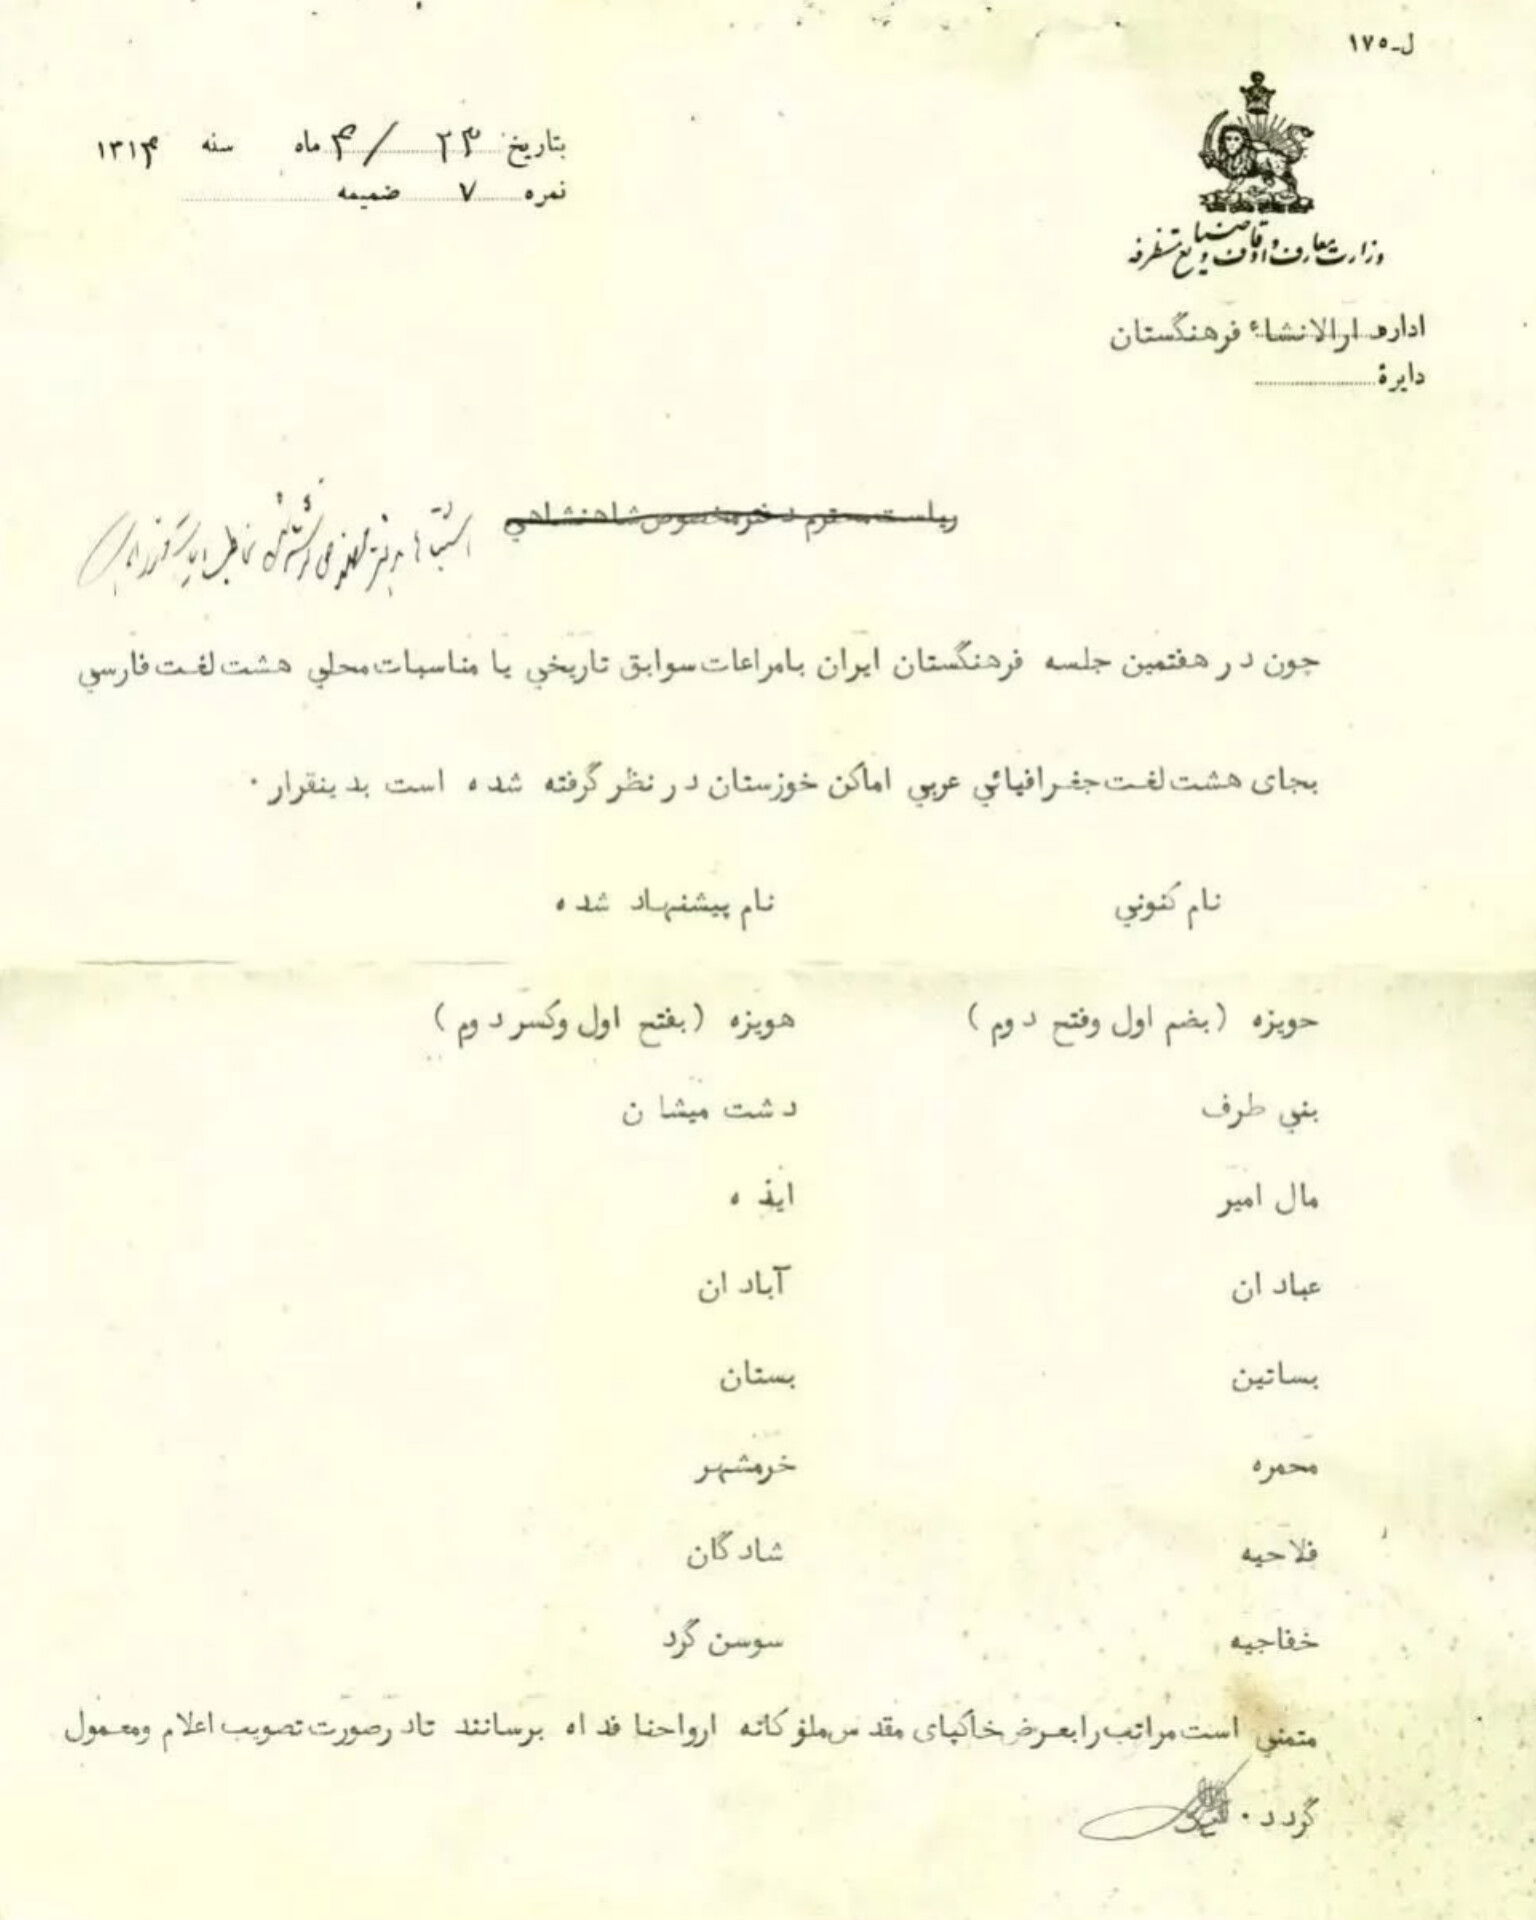 ل-۱۷۵
بتاریخ ۲۳ / ۴ ماه سنه ۱۳۱۴
نمره ۷ ضمیمه
وزارت معارف و اوقاف و صنایع مستظرفه
اداره دارالانشاء فرهنگستان
دایرهٔ
ریاست محترم دفتر مخصوص شاهنشاهي
چون در هفتمین جلسه فرهنگستان ایران بامراعات سوابق تاریخي یا مناسبات محلي هشت لغت فارسي
بجای هشت لغت جغرافیائي عربي اماکن خوزستان در نظر گرفته شده است بدینقرار ۰
نام کنوني نام پیشنهاد شده
حویزه (بضم اول وفتح دوم) هویزه (بفتح اول وکسر دوم)
بني طرف دشت میشان
مال امیر ایذه
عبادان آبادان
بساتین بستان
محمره خرمشهر
فلاحیه شادگان
خفاجیه سوسن گرد
متمني است مراتب را بعرض خاکپای مقدس ملوکانه ارواحنا فداه برسانند تادرصورت تصویب اعلام ومعمول
گردد ۰